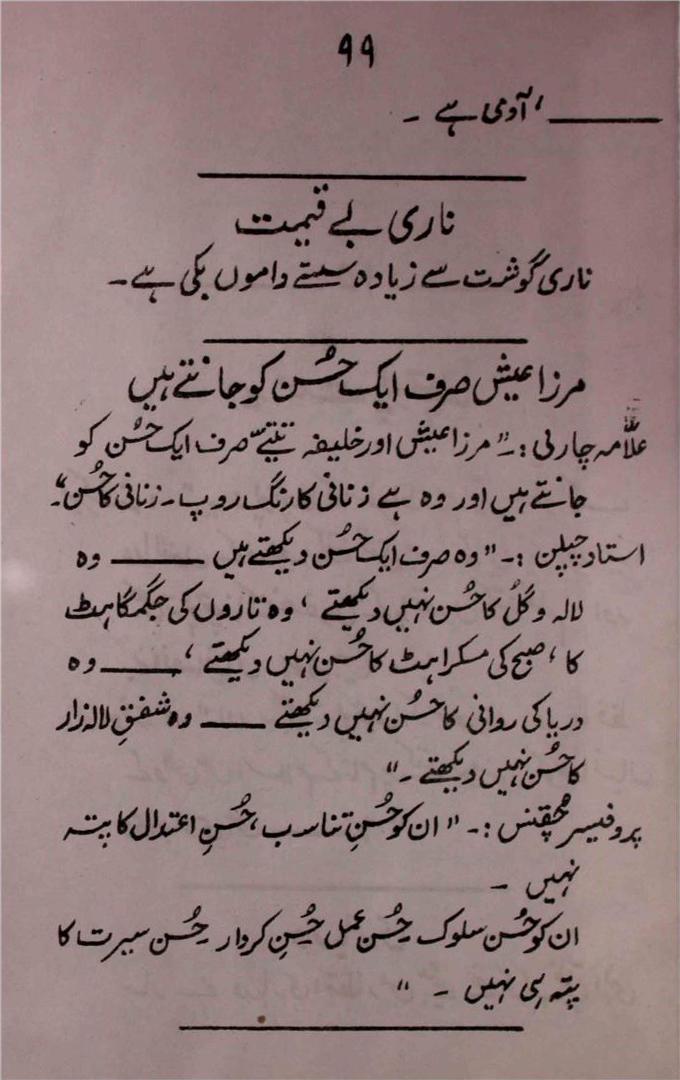 ۹۹
——— ’ آدمی ہے ۔
ناری بے قیمت
ناری گوشت سے زیادہ سستے داموں بکی ہے۔
مرزا عیش صرف ایک حُسن کو جانتے ہیں
علّامہ چارنی :۔ "مرزا عیش اور خلیفہ صرف ایک حُسن کو
جانتے ہیں اور وہ ہے زنانی کا رنگ روپ۔ زنانی کا حُسن"۔
استاد چپلن :۔ "وہ صرف ایک حُسن دیکھتے ہیں ——— وہ
لالہ و گُل کا حُسن نہیں دیکھتے ، وہ تاروں کی جگمگاہٹ
کا ، صبح کی مسکراہٹ کا حُسن نہیں دیکھتے ، ——— وہ
دریا کی روانی کا حُسن نہیں دیکھتے ——— وہ شفقِ لالہ زار
کا حُسن نہیں دیکھتے ۔"
پروفیسر :۔ "ان کو حُسنِ تناسب ، حُسنِ اعتدال کا پتہ
نہیں ۔
ان کو حُسن سلوک حُسن عمل حُسنِ کردار حُسن سیرت کا
پتہ ہی نہیں ۔ "